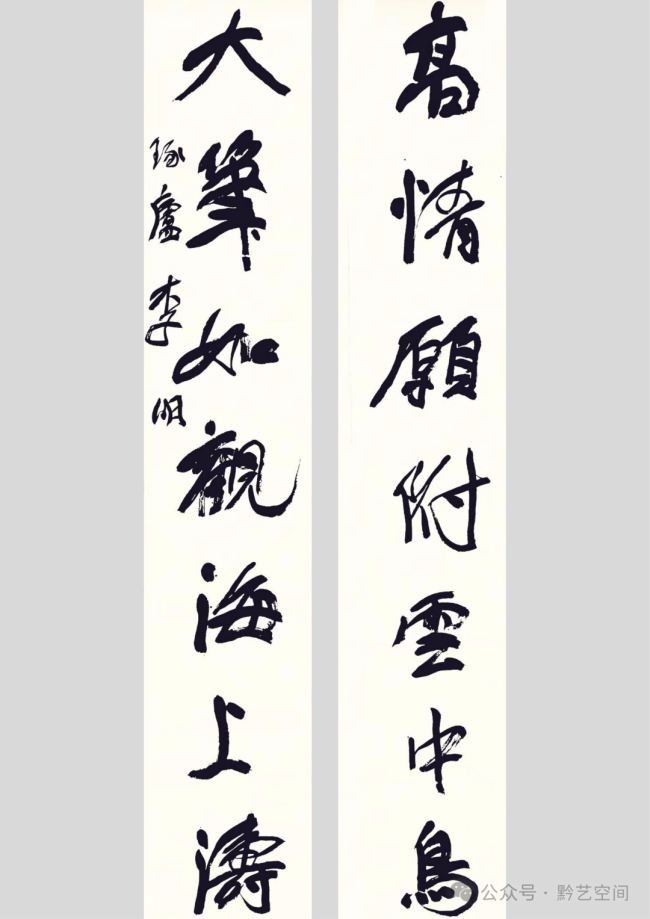 高情願附雲中鳥
大筆如觀海上濤
琢廬李明
公众号·黔艺空间